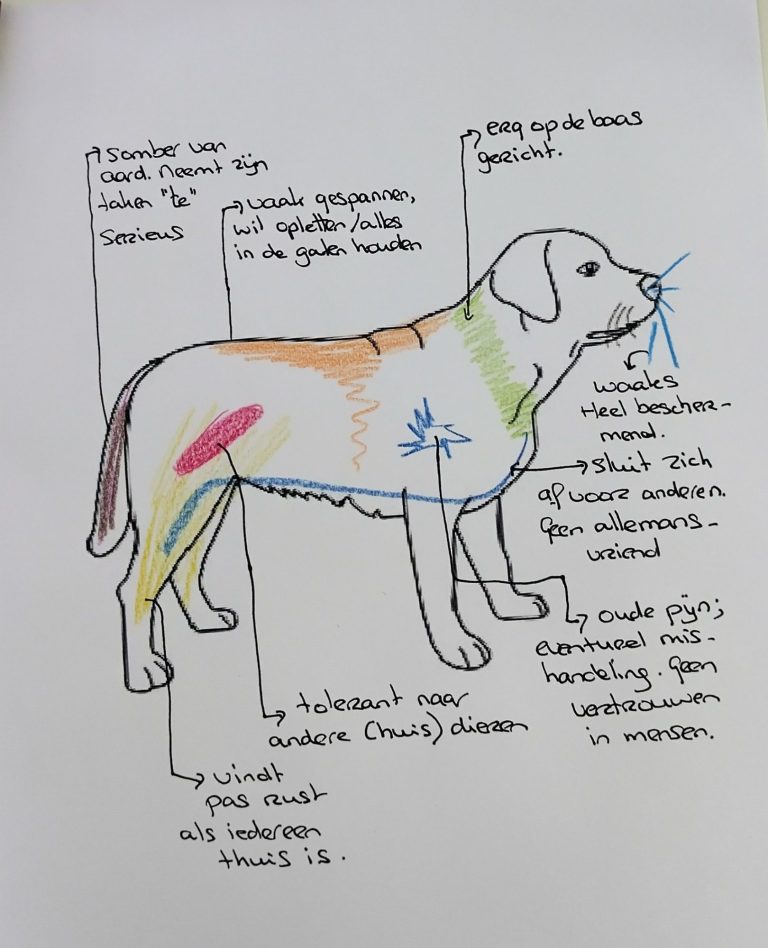 Somber van
aard. Neemt zijn
taken "te"
Serieus
vaak gespannen,
wil opletten/alles
in de gaten houden
erg op de baas
gericht.
waaks
Heel bescher-
mend.
sluit zich
af voor anderen.
Geen allemans-
vriend
oude pijn;
eventueel mis-
handeling. Geen
vertrouwen
in mensen.
tolerant naar
andere (huis) dieren
vindt
pas rust
als iedereen
thuis is.